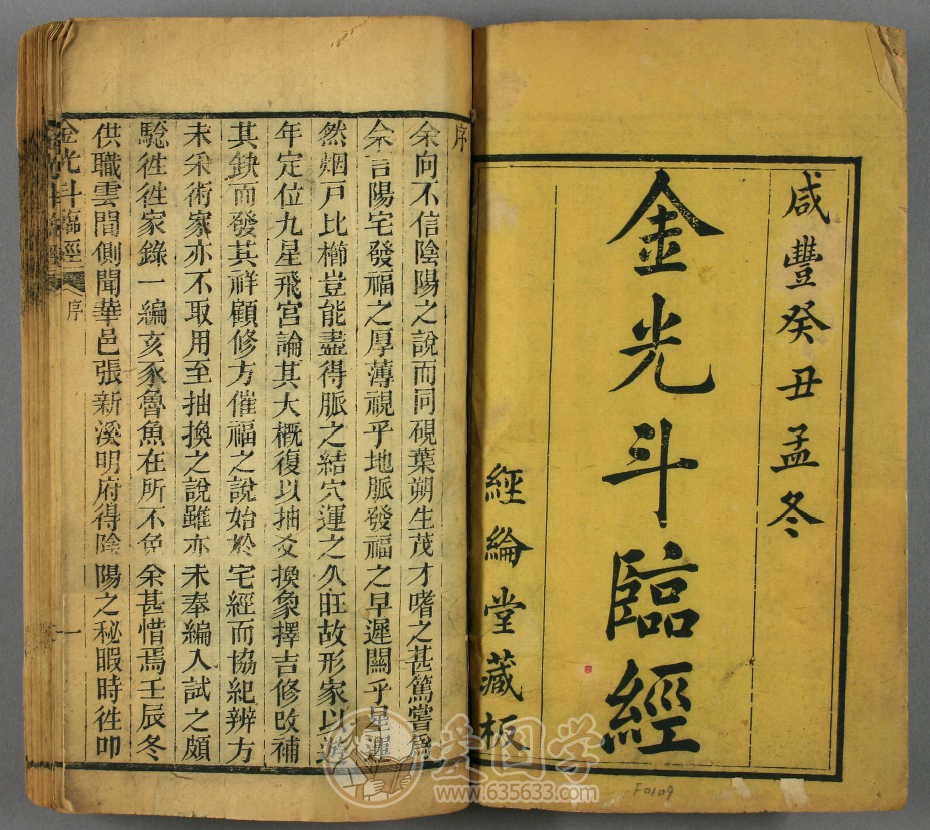 咸豐癸丑孟冬
金光斗臨經
經綸堂藏板
序
余向不信陰陽之說而同硯葉朔生茂才嗜之甚篤嘗爲
余言陽宅發福之厚薄視乎地脈發福之早遲關乎星運
然烟戸比櫛豈能盡得脈之結穴運之久旺故形家以遊
年定位九星飛宮論其大概復以抽爻換象擇吉修改補
其缺而發其祥顧修方催福之說始於宅經而協紀辨方
未采術家亦不取用至抽換之說雖亦未奉編入試之頗
騐徃徃家錄一編亥豕魯魚在所不免余甚惜焉壬辰冬
供職雲間側聞華邑張新溪明府得陰陽之秘暇時徃叩
金光斗臨經
序
一
爱国学
www.635633.com
F0109